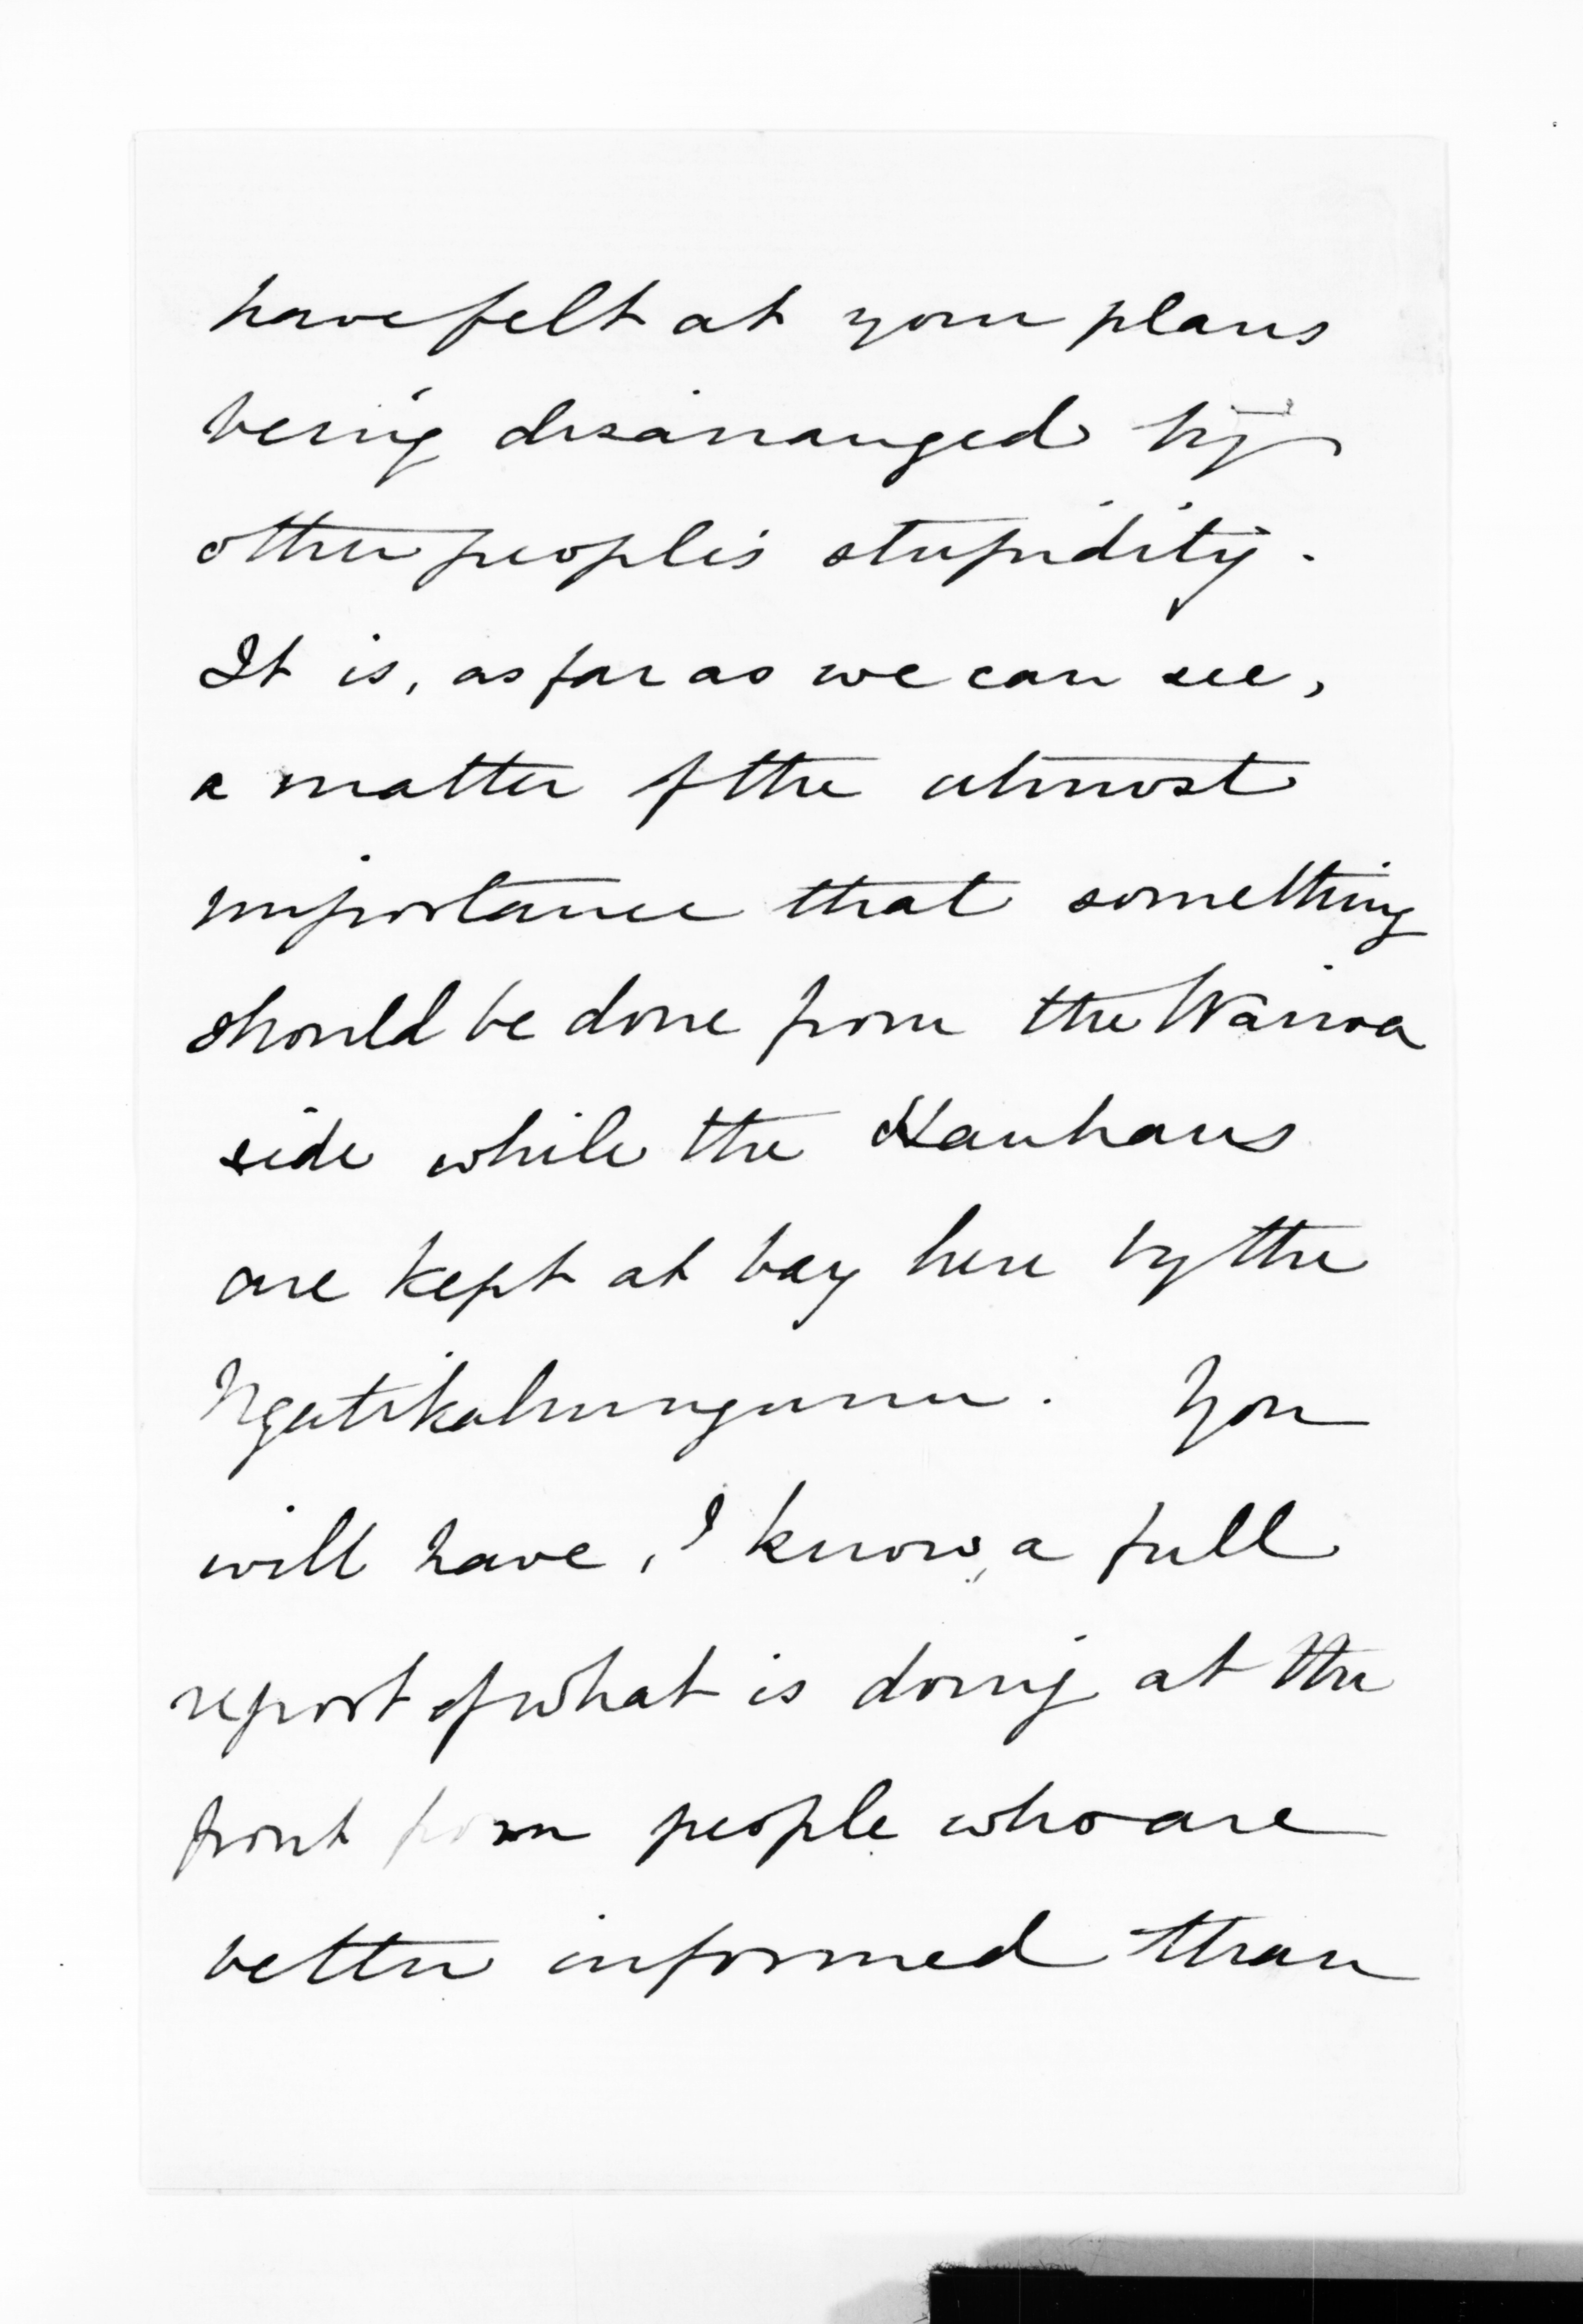 have felt at your plans
being disarranged by
other people's stupidity.
It is, as far as we can see,
a matter of the utmost
importance that something
should be done from the Wairoa
side while the Hauhaus
are kept at bay here by the
Ngatikahungunu. You
will have, I know, a full
report of what is doing at the
front from people who are
better informed than